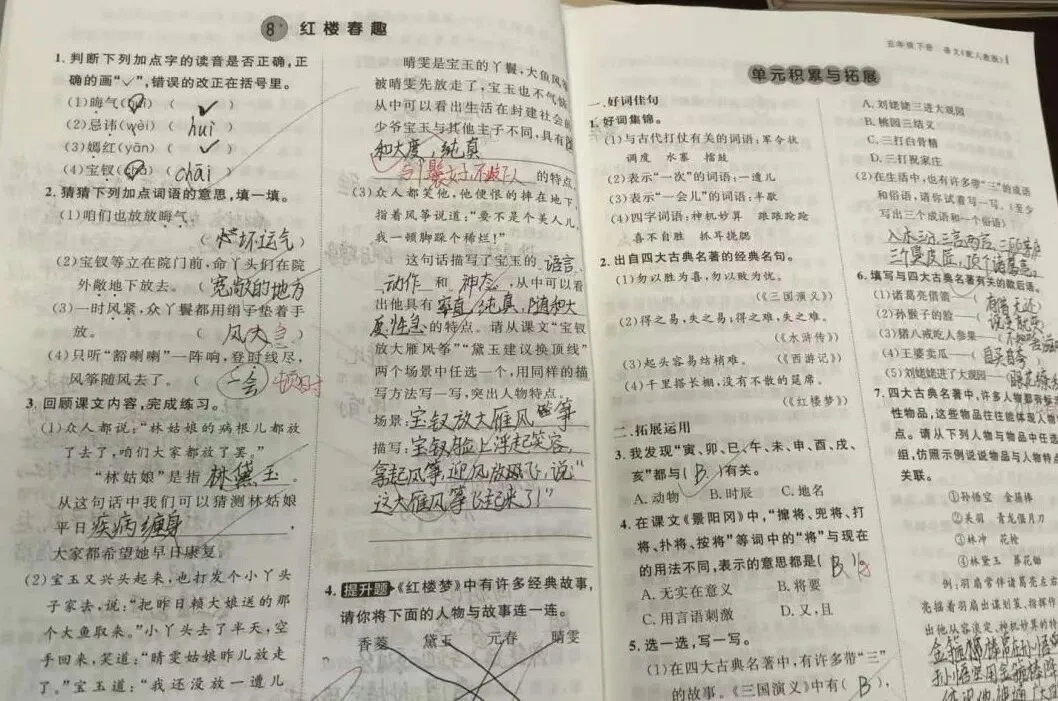 8 红楼春趣
1. 判断下列加点字的读音是否正确,正
确的画“✓”,错误的改正在括号里。
(1)晦气( ) ( ✓ )
(2)忌讳(wèi) ( huì )
(3)嫣红(yān) ( ✓ )
(4)宝钗( ) ( chāi )
2. 猜猜下列加点词语的意思,填一填。
(1)咱们也放放晦气。
( 坏运气 )
(2)宝钗等立在院门前,命丫头们在院
外敞地下放去。( 宽敞的地方 )
(3)一时风紧,众丫鬟都用绢子垫着手
放。 ( 风大 急 )
(4)只听“豁喇喇”一阵响,登时线尽,
风筝随风去了。 ( 一会 )
3. 回顾课文内容,完成练习。
(1)众人都说:“林姑娘的病根儿都放
了去了,咱们大家都放了罢。”
“林姑娘”是指 林黛玉 。
从这句话中我们可以猜测林姑娘
平日 疾病缠身 ,
大家都希望她早日康复。
(2)宝玉又兴头起来,也打发个小丫头
子家去,说:“把昨日赖大娘送的那
个大鱼取来。”小丫头去了半天,空
手回来,笑道:“晴雯姑娘昨儿放走
了。”宝玉道:“我还没放一遭儿
晴雯是宝玉的丫鬟,大鱼风筝
被晴雯先放走了,宝玉也不气恼
从中可以看出生活在封建社会的
少爷宝玉与其他主子不同,具有
和大度,纯真
的特点。
(3)众人都笑他,他便恨的摔在地下,
指着风筝说道:“要不是个美人儿,
我一顿脚跺个稀烂!”
这句话描写了宝玉的 语言 、
动作 和 神态 ,从中可以看
出他具有 率直,纯真,随和大
度,性急 的特点。请从课文“宝钗
放大雁风筝”“黛玉建议换顶线”
两个场景中任选一个,用同样的描
写方法写一写,突出人物特点。
场景: 宝钗放大雁风 筝
描写: 宝钗脸上浮起笑容,
拿起风筝,迎风放 飞,说:“
这大雁风筝飞起来了!”
4. 提升题 《红楼梦》中有许多经典故事,
请你将下面的人物与故事连一连。
香菱 黛玉 元春 晴雯
五年级下册 语文(配人教版)
单元积累与拓展
一、好词佳句
1. 好词集锦。
(1)与古代打仗有关的词语:军令状
调度 水寨 擂鼓
(2)表示“一次”的词语:一遭儿
(3)表示“一会儿”的词语:半歇
(4)四字词语:神机妙算 踉踉跄跄
喜不自胜 抓耳挠腮
2. 出自四大古典名著的经典名句。
(1)勿以恶小为
(《三国演义》)
(2)得之易,失之易;得之难,失之难。
(《水浒传》)
(3)起头容易结梢难。 (《西游记》)
(4)千里搭长棚,没有不散的筵席。
(《红楼梦》)
二、拓展运用
3. 我发现“寅、卯、巳、午、未、申、酉、戌、
亥”都与( B )有关。
A. 动物 B. 时辰 C. 地名
4. 在课文《景阳冈》中,“撺将、兜将、打
将、扑将、按将”等词中的“将”与现在
的用法不同,表示的意思都是( B )
A. 无实在意义 B. 将要
C. 用言语刺激 D. 又,且
5. 选一选,写一写。
(1)在四大古典名著中,有许多带“三”
的故事。《三国演义》中有( B ),
A. 刘姥姥三进大观园
B. 桃园三结义
C. 三打白骨精
D. 三打祝家庄
(2)在生活中,也有许多带“三”的成语
和俗语,请你试着写一写。(至少
写出三个成语和一个俗语)
入木三分,三言两语,
三个臭皮匠,顶个诸葛亮。
6. 填写与四大古典名著有关的歇后语。
(1)诸葛亮借箭—— ( 有借无还 )
(2)孙猴子的脸—— ( 说变就变 )
(3)猪八戒吃人参果——
(4)王婆卖瓜—— ( 自卖自夸 )
(5)刘姥姥进了大观园——
7. 四大古典名著中,许多人物都有标
性物品,这些物品往往能体现人物
点。请从下列人物与物品中任选
组,仿照示例说说物品与人物特点
关联。
①孙悟空 金箍棒
②关羽 青龙偃月刀
③林冲 花枪
④林黛玉 葬花锄
例:羽扇常伴诸葛亮左右
亮摇着羽扇出谋划策、指挥作
出他从容淡定、神机妙算的特